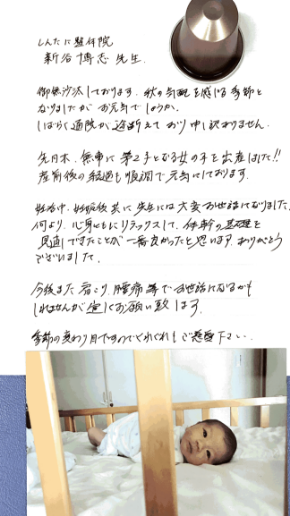 しんたに整体院
新谷博志 先生
御無沙汰しております。秋の気配を感じる季節と
なりましたが お元気でしょうか。
しばらく通院が途絶えており申し訳ありません。
先日木、無事に第2子となる女の子を出産しました!!
産前後の経過も順調で元気にしております。
妊娠中、妊娠後共に先生には大変お世話になりました。
何より、心身ともにリラックスして、体幹の基礎を
見直しできたことが一番良かったと思います。ありがとう
ございました。
今後また肩こり、腰痛等でお世話になるかも
しれませんが宜しくお願い致します。
季節の変わり目ですのでどうぞくれぐれもご自愛下さい。